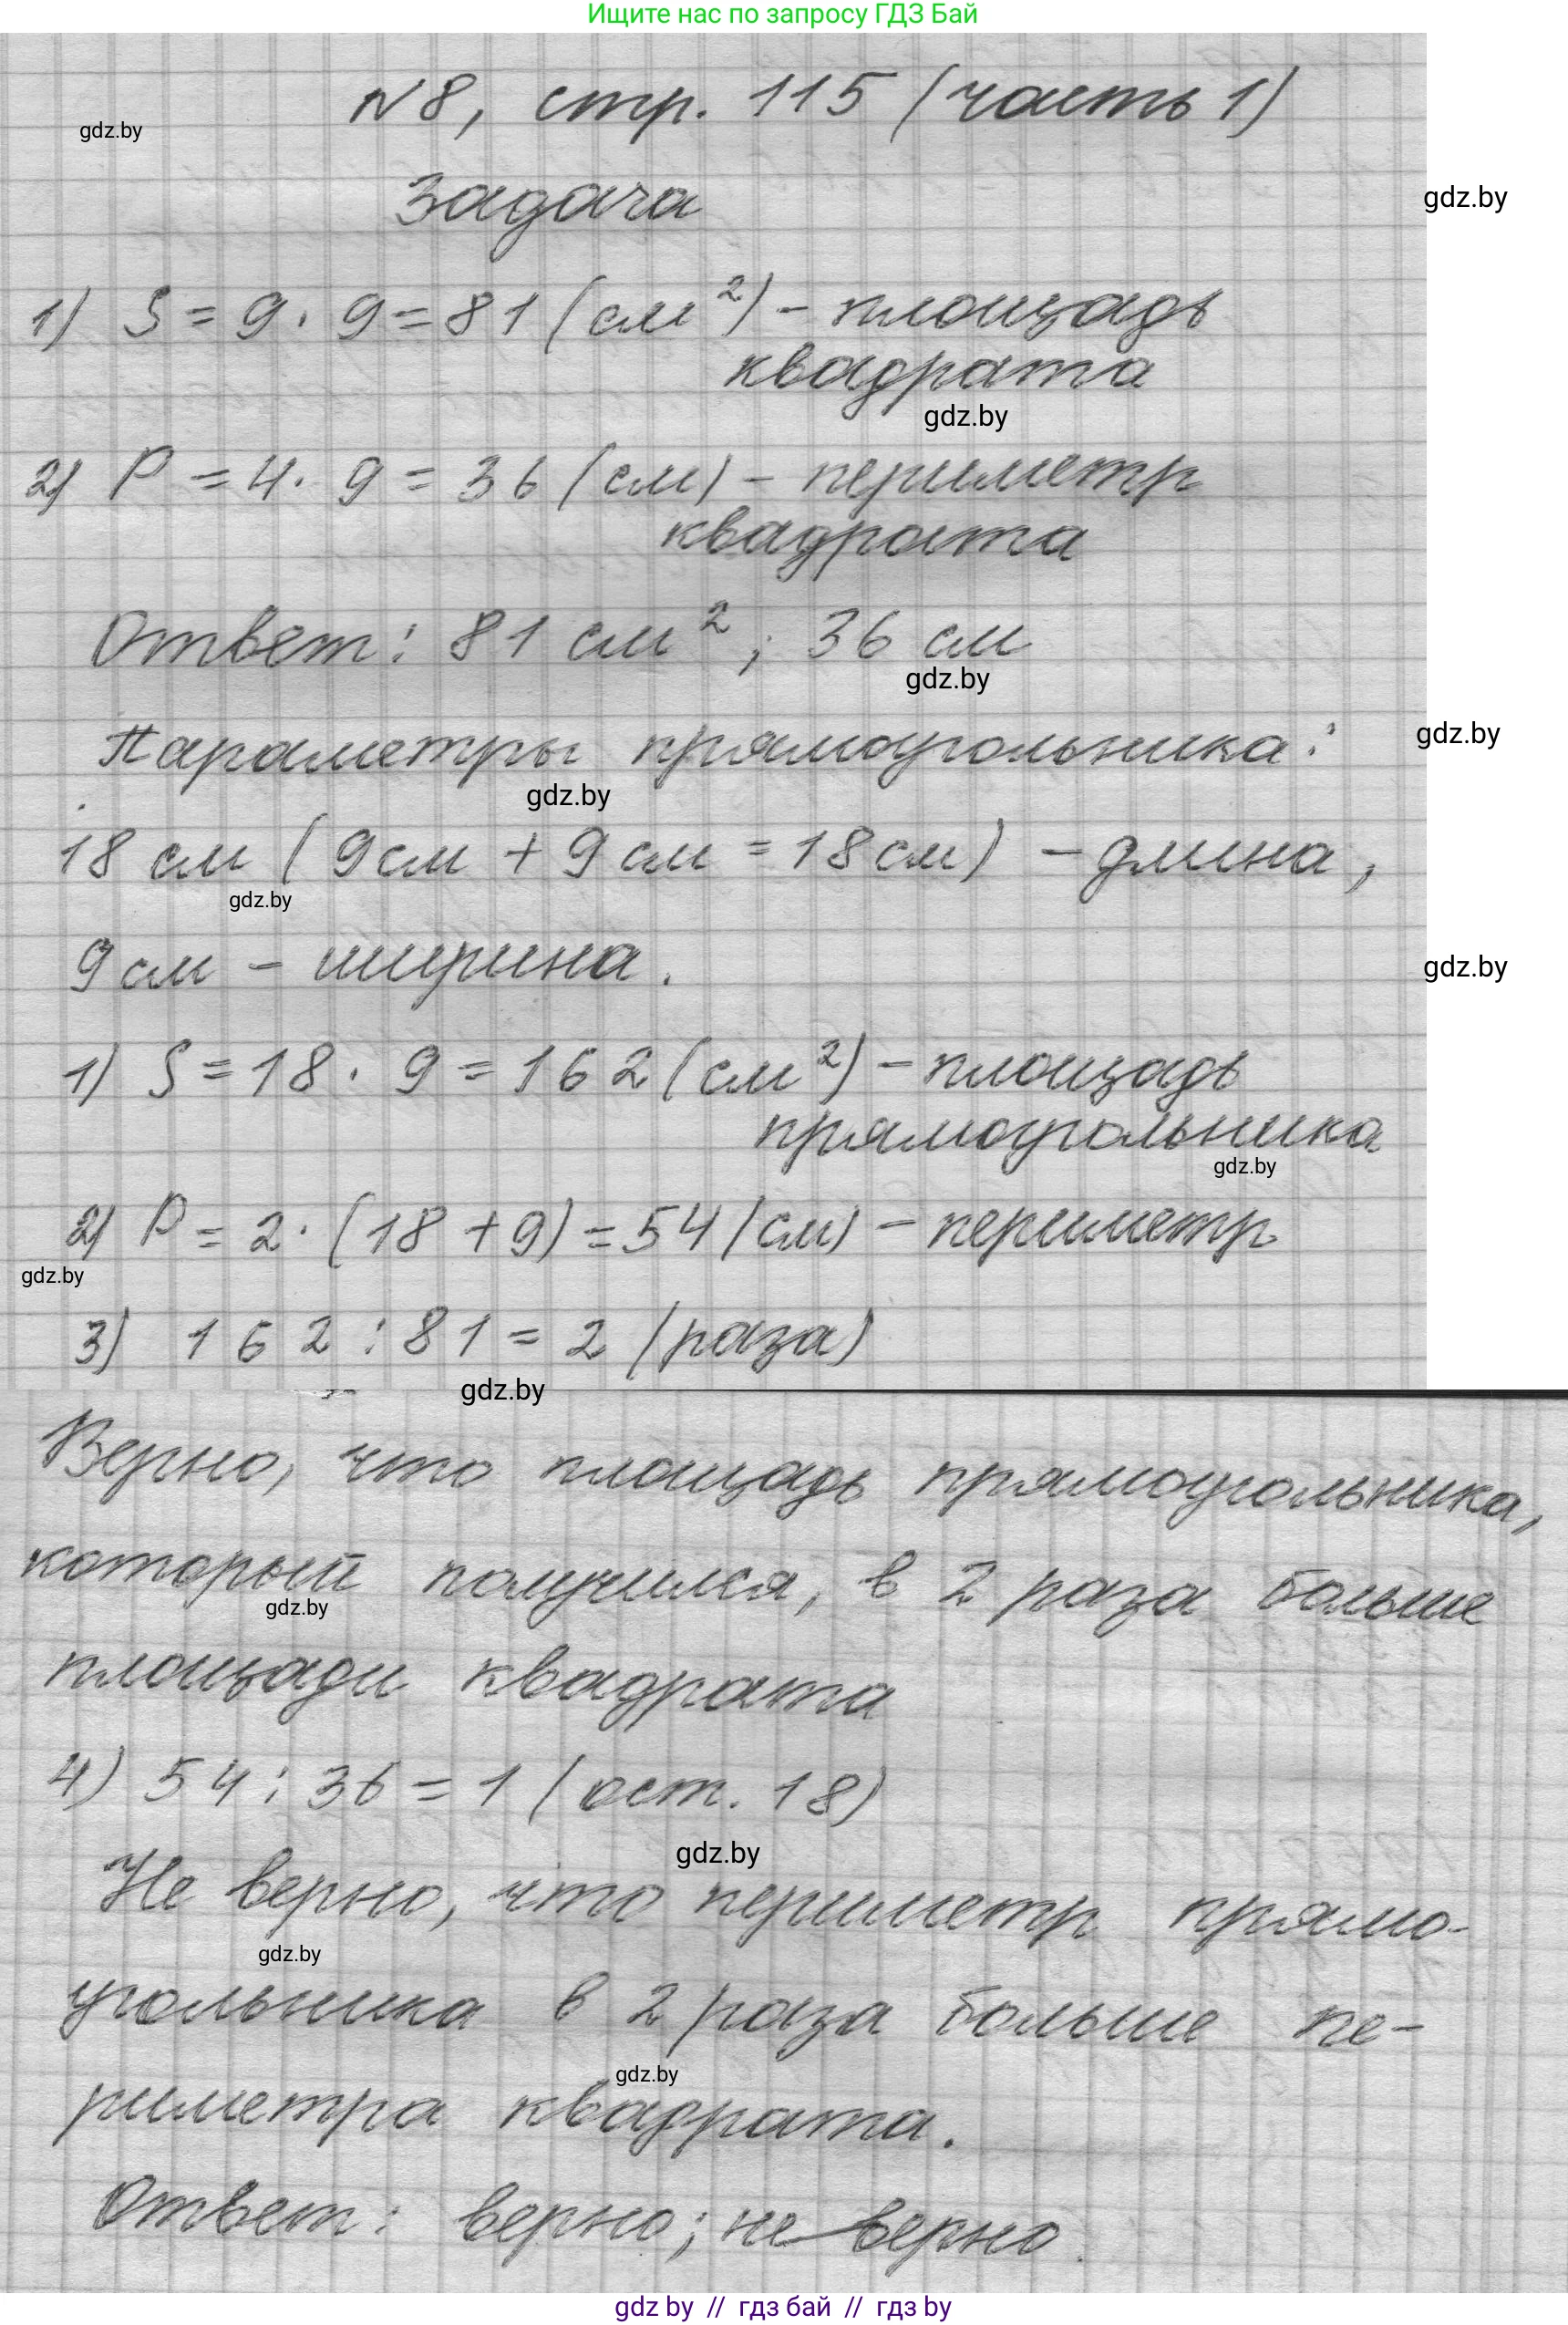 Ищите нас по запросу ГДЗ Бай
№8, стр. 115 (часть 1)
gdz.by
Задача
gdz.by
1) S = 9 · 9 = 81 (см²) – площадь
квадрата
gdz.by
2) P = 4 · 9 = 36 (см) – периметр
квадрата
Ответ: 81 см²; 36 см
gdz.by
Параметры прямоугольника:
gdz.by
gdz.by
18 см (9 см + 9 см = 18 см) – длина,
gdz.by
9 см – ширина.
gdz.by
1) S = 18 · 9 = 162 (см²) – площадь
прямоугольника
gdz.by
2) P = 2 · (18 + 9) = 54 (см) – периметр
gdz.by
3) 162 : 81 = 2 (раза)
gdz.by
Верно, что площадь прямоугольника,
который получился, в 2 раза больше
gdz.by
площади квадрата
4) 54 : 36 = 1 (ост. 18)
gdz.by
Не верно, что периметр прямо-
gdz.by
угольника в 2 раза больше пе-
gdz.by
риметра квадрата.
Ответ: верно; не верно.
gdz by // гдз бай // гдз by